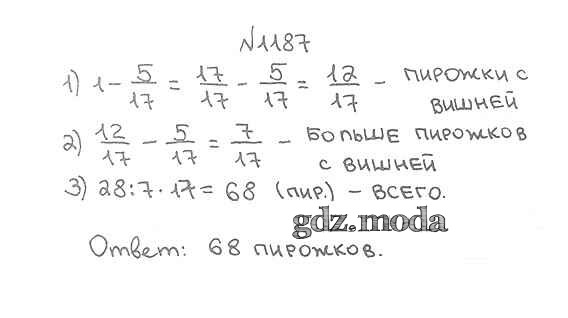 №1187
1) 1 - 5/17 = 17/17 - 5/17 = 12/17 - пирожки с
вишней
2) 12/17 - 5/17 = 7/17 - больше пирожков
с вишней
3) 28:7·17= 68 (пир.) - всего.
gdz.moda
Ответ: 68 пирожков.